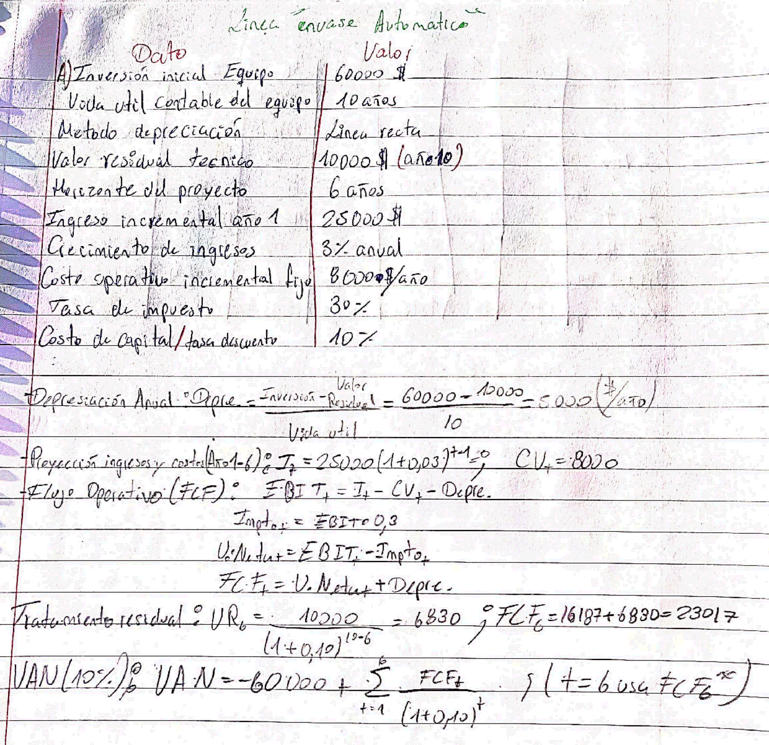 Linea "envase Automatico"
Dato Valor
A) Inversión inicial Equipo 60000 $
Vida util contable del equipo 10 años
Metodo depreciación Linea recta
Valor residual tecnico 10000 $ (año 10)
Horizonte del proyecto 6 años
Ingreso incremental año 1 25000 $
Crecimiento de ingresos 3% anual
Costo operativo incremental fijo 8000 $/año
Tasa de impuesto 30%
Costo de capital/tasa descuento 10%
- Depresiación Anual: Depre. = (Inversión - Valor Residual) / Vida util = (60000 - 10000) / 10 = 5000 ($/año)
- Proyección ingresos y costos (Año 1-6): I_t = 25000 (1+0,03)^(t-1) ; CV_t = 8000
- Flujo Operativo (FCF): EBIT_t = I_t - CV_t - Depre.
Impto_t = EBIT · 0,3
U.Neta_t = EBIT_t - Impto_t
FCF_t = U.Neta_t + Depre.
Tratamiento residual: VR_6 = 10000 / (1+0,10)^(10-6) = 6830 ; FCF_6 = 16187 + 6830 = 23017
VAN (10%): VAN = -60000 + Σ_(t=1)^6 FCF_t / (1+0,10)^t ; (t=6 usa FCF_6^*)